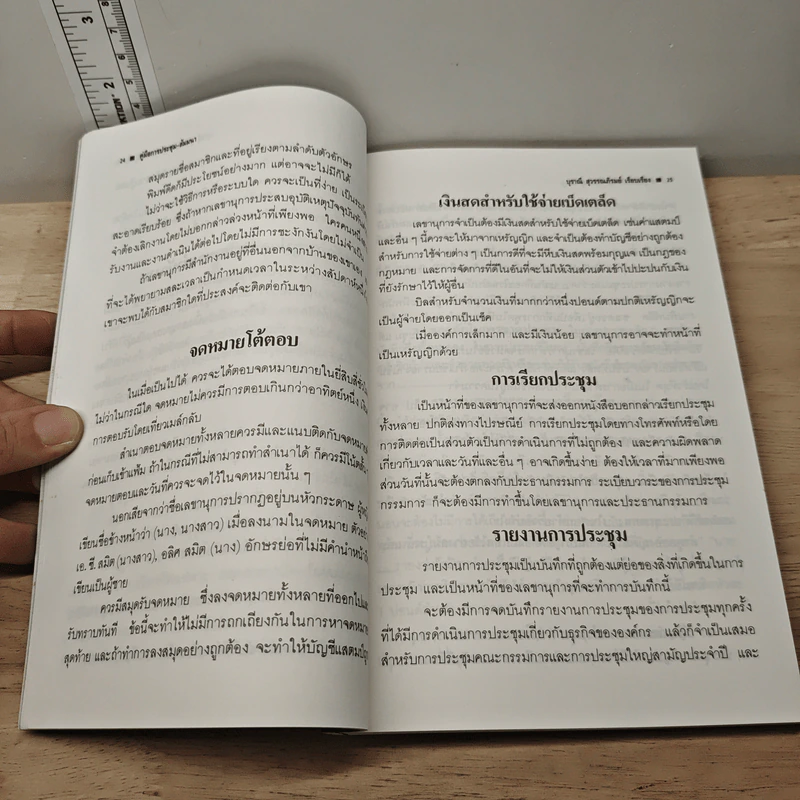 24 ■ คู่มือการประชุม-สัมมนา
สมุดรายชื่อสมาชิกและที่อยู่เรียงตามลำดับตัวอักษร
พิมพ์ดีดก็มีประโยชน์อย่างมาก แต่อาจจะไม่มีก็ได้
ไม่ว่าจะใช้วิธีการหรือระบบใด ควรจะเป็นที่ง่าย เป็นระเบียบ
สะอาดเรียบร้อย ซึ่งถ้าหากเลขานุการประสบอุบัติเหตุปัจจุบันทันด่วน
จำต้องเลิกงานโดยไม่บอกกล่าวล่วงหน้าที่เพียงพอ ใครคนหนึ่ง
รับงานและงานดำเนินได้ต่อไปโดยไม่มีการชะงักงันโดยไม่จำเป็น
ถ้าเลขานุการมีสำนักงานอยู่ที่อื่นนอกจากบ้านของเขาเอง
ที่จะได้พยายามสละเวลาเป็นกำหนดเวลาในระหว่างสัปดาห์หนึ่ง
เขาจะพบได้กับสมาชิกใดที่ประสงค์จะติดต่อกับเขา
จดหมายโต้ตอบ
ในเมื่อเป็นไปได้ ควรจะได้ตอบจดหมายภายในยี่สิบสี่ชั่วโมง
ไม่ว่าในกรณีใด จดหมายไม่ควรมีการตอบเกินกว่าอาทิตย์หนึ่ง
การตอบรับโดยเที่ยวเมล์กลับ
สำเนาตอบจดหมายทั้งหลายควรมีและแนบติดกับจดหมาย
ก่อนเก็บเข้าแฟ้ม ถ้าในกรณีที่ไม่สามารถทำสำเนาได้ ก็ควรมีโน้ตสั้น
จดหมายตอบและวันที่ควรจะจดไว้ในจดหมายนั้น ๆ
นอกเสียจากว่าชื่อเลขานุการปรากฏอยู่บนหัวกระดาษ
เขียนชื่อข้างหน้าว่า (นาง, นางสาว) เมื่อลงนามในจดหมาย
เอ. ซี. สมิต (นางสาว), อลิศ สมิต (นาง) อักษรย่อที่ไม่มีคำนำหน้า
เขียนเป็นผู้ชาย
ควรมีสมุดรับจดหมาย ซึ่งลงจดหมายทั้งหลายที่ออกไปและ
รับทราบทันที ข้อนี้จะทำให้ไม่มีการถกเถียงกันในการหาจดหมาย
สุดท้าย และถ้าทำการลงสมุดอย่างถูกต้อง จะทำให้บัญชีแสตมป์ถูก
บุราณี สุวรรณภิรมย์ เรียบเรียง ■ 25
เงินสดสำหรับใช้จ่ายเบ็ดเตล็ด
เลขานุการจำเป็นต้องมีเงินสดสำหรับใช้จ่ายเบ็ดเตล็ด เช่นค่าแสตมป์
และอื่น ๆ นี้ควรจะให้มาจากเหรัญญิก และจำเป็นต้องทำบัญชีอย่างถูกต้อง
สำหรับการใช้จ่ายต่าง ๆ เป็นการดีที่จะมีหีบเงินสดพร้อมกุญแจ เป็นกฎของ
กฎหมาย และการจัดการที่ดีในอันที่จะไม่ให้เงินส่วนตัวเข้าไปปะปนกับเงิน
ที่ยังรักษาไว้ให้ผู้อื่น
บิลสำหรับจำนวนเงินที่มากกว่าหนึ่งปอนด์ตามปกติเหรัญญิกจะ
เป็นผู้จ่ายโดยออกเป็นเช็ค
เมื่อองค์การเล็กมาก และมีเงินน้อย เลขานุการอาจจะทำหน้าที่
เป็นเหรัญญิกด้วย
การเรียกประชุม
เป็นหน้าที่ของเลขานุการที่จะส่งออกหนังสือบอกกล่าวเรียกประชุม
ทั้งหลาย ปกติส่งทางไปรษณีย์ การเรียกประชุมโดยทางโทรศัพท์หรือโดย
การติดต่อเป็นส่วนตัวเป็นการดำเนินการที่ไม่ถูกต้อง และความผิดพลาด
เกี่ยวกับเวลาและวันที่และอื่น ๆ อาจเกิดขึ้นง่าย ต้องให้เวลาที่มากเพียงพอ
ส่วนวันที่นั้นจะต้องตกลงกับประธานกรรมการ ระเบียบวาระของการประชุม
กรรมการ ก็จะต้องมีการทำขึ้นโดยเลขานุการและประธานกรรมการ
รายงานการประชุม
รายงานการประชุมเป็นบันทึกที่ถูกต้องแต่ย่อของสิ่งที่เกิดขึ้นในการ
ประชุม และเป็นหน้าที่ของเลขานุการที่จะทำการบันทึกนี้
จะต้องมีการจดบันทึกรายงานการประชุมของการประชุมทุกครั้ง
ที่ได้มีการดำเนินการประชุมเกี่ยวกับธุรกิจขององค์กร แล้วก็จำเป็นเสมอ
สำหรับการประชุมคณะกรรมการและการประชุมใหญ่สามัญประจำปี และ